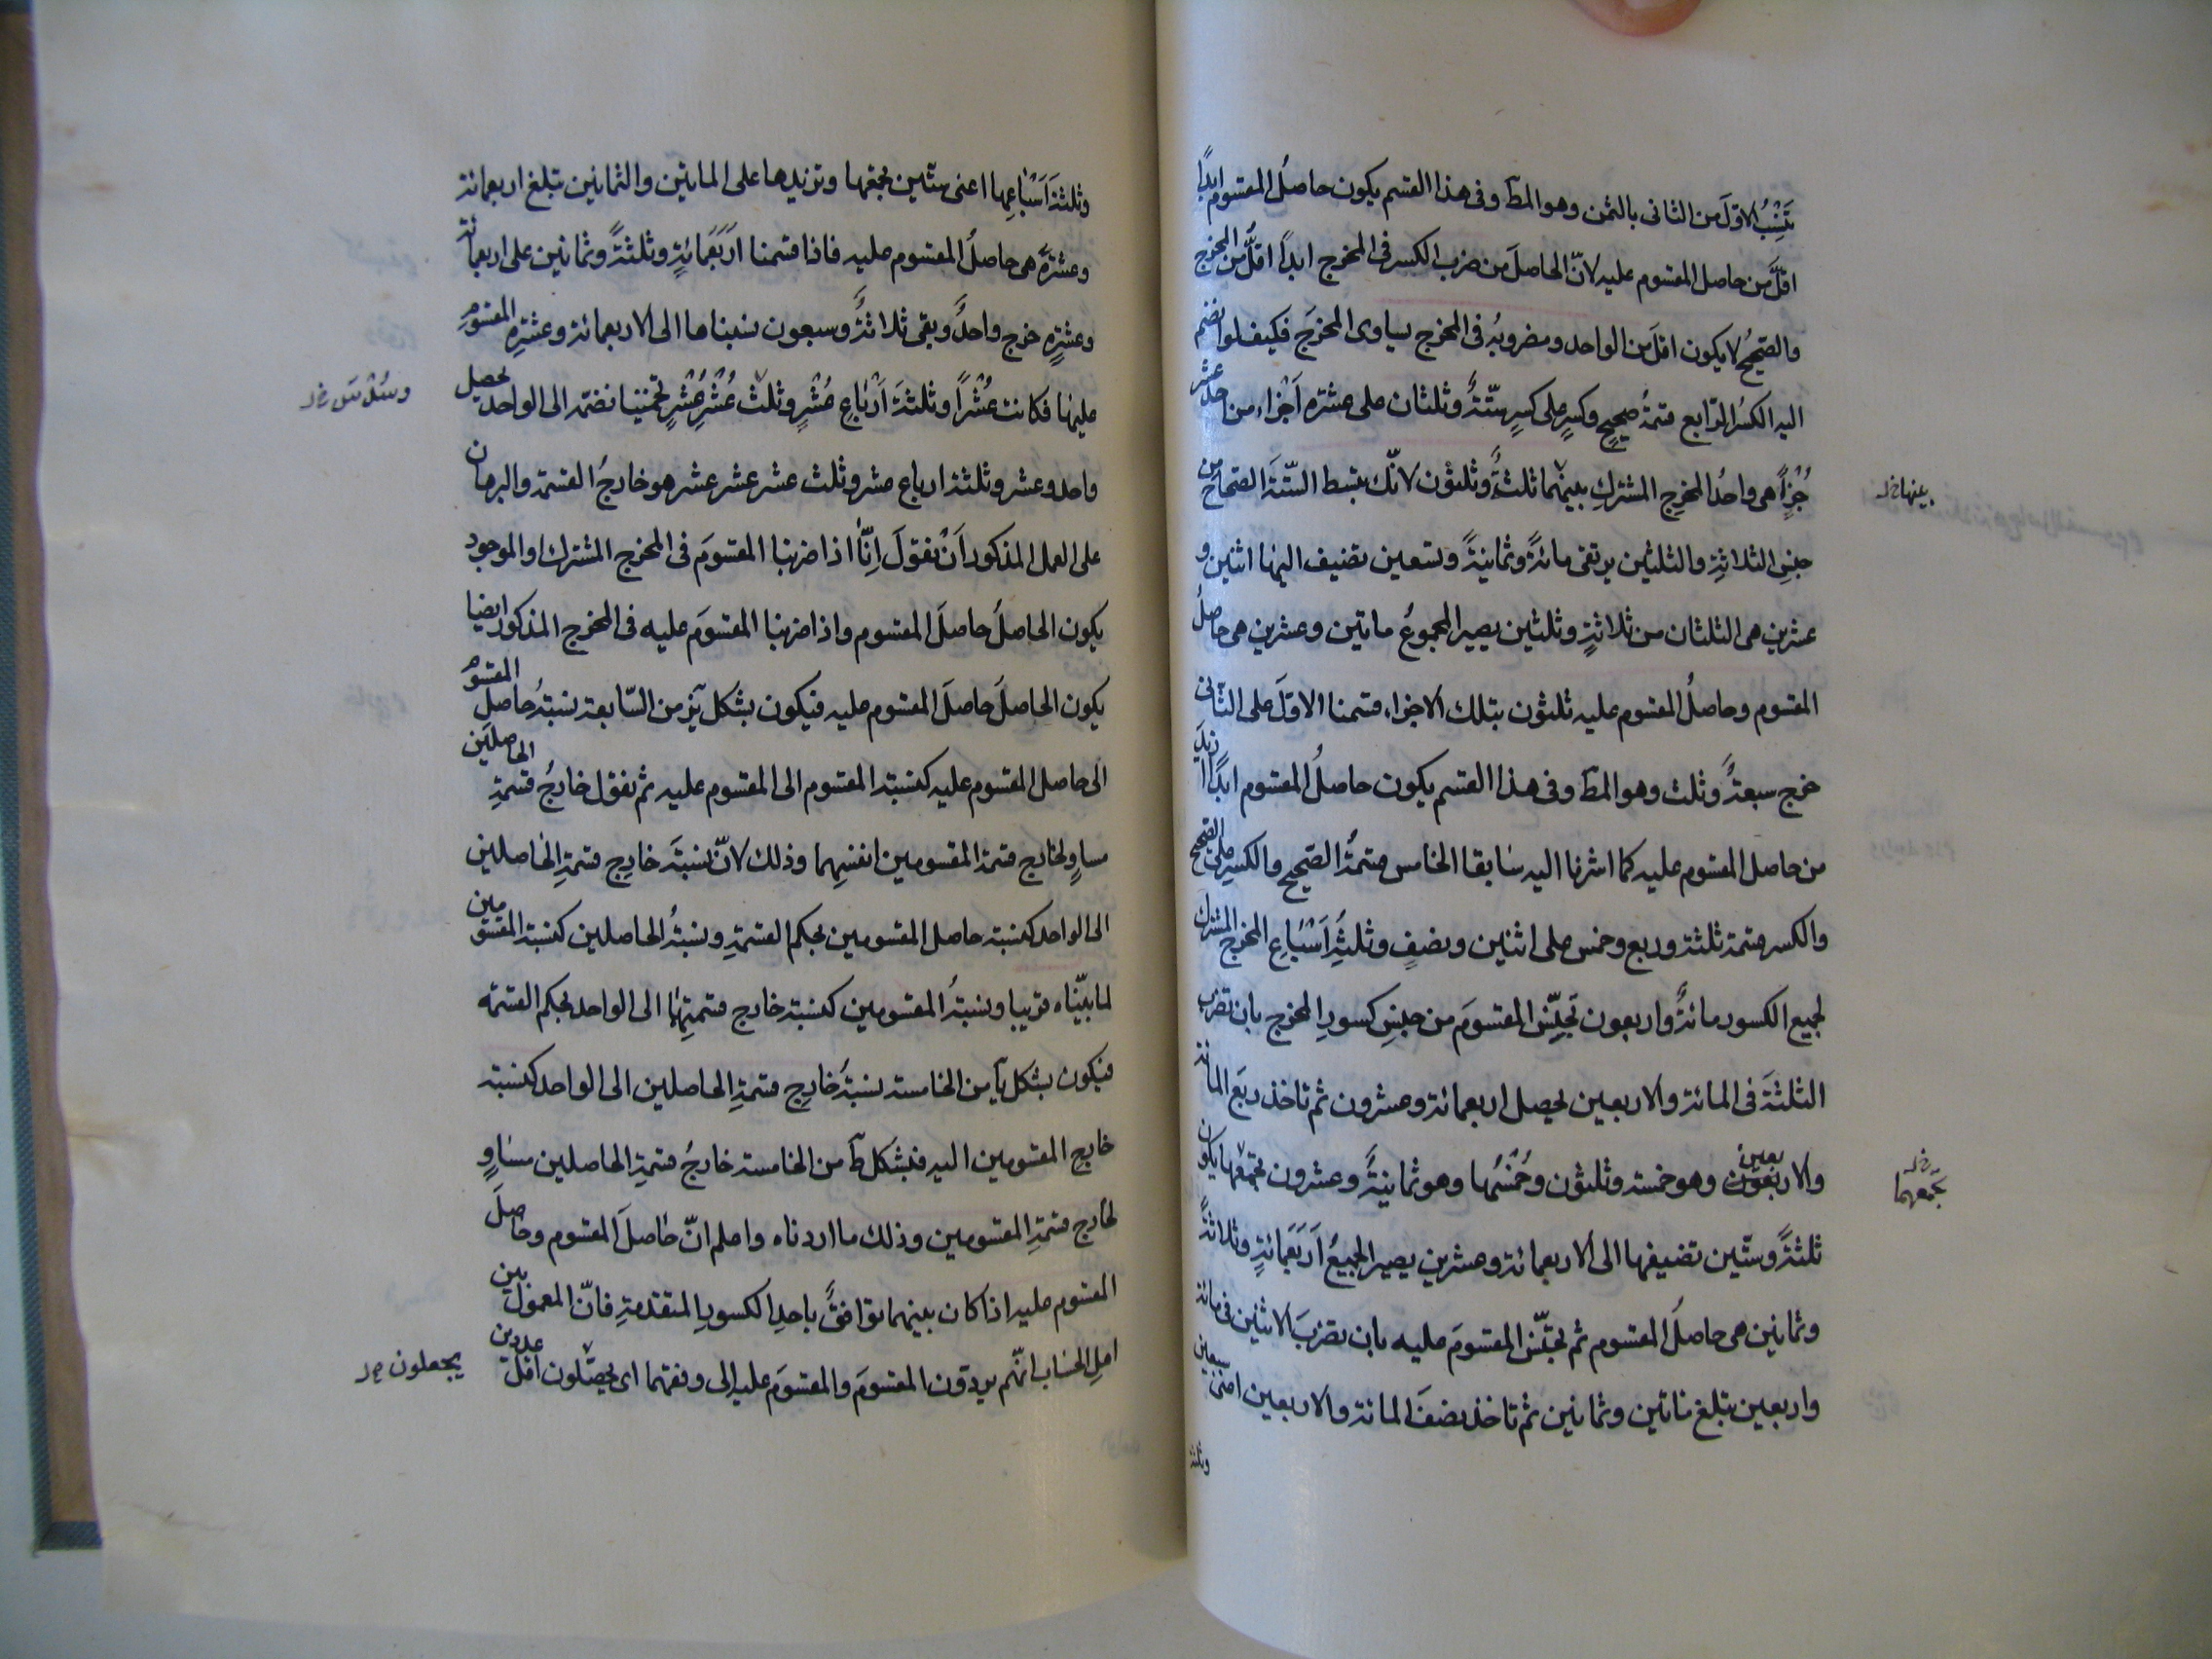 تَنْسِبُ الاوّلَ من الثانى بالثمن وهو المطَ وفى هذا القسم يكون حاصلُ المقسوم ابدًا
اقلَّ من حاصل المقسوم عليه لانّ الحاصلَ من ضرب الكسر فى المخرج ابدًا اقلُّ من المخرج
والصّحيحُ لا يكون اقلَ من الواحد ومضروبُه فى المخرج يساوى المخرَج فكيف لو انضم
اليه الكسرُ الرّابع قسمةُ صحيحٍ وكسرٍ على كسرٍ ستّةٌ وثلثان على عشرة اَجْزاء من احد عشر
جُزْءًا هى واحدُ المخرجِ المشتركِ بينهما ثلثةٌ وثلثون لانّك تبسط السّتّةَ الصّحاحَ من
جنسِ الثلاثةِ والثلثين يرتقى مائةً وثمانيةً وتسعين تضيف اليها اثنين و
عشرين هى الثلثان من ثلاثةٍ وثلثين يصير المجموعُ مايتين وعشرين هى حاصلُ
المقسوم وحاصلُ المقسوم عليه ثلثون بتلك الاجزاء قسمنا الاوّلَ على الثّانى
خرج سبعةٌ وثلث وهو المطَ وفى هذا القسم يكون حاصلُ المقسوم ابدًا ازيدَ
من حاصل المقسوم عليه كما اشرنا اليه سابقا الخامس قسمةُ الصّحيح والكسرِ على الصّحيح
والكسر قسمة ثلثة وربع وخمس على اثنين ونصفٍ وثلثةِ اَسْبَاعٍ المخرج المشترك
لجميع الكسور مائةٌ واربعون تجنِّسُ المقسومَ من جنسِ كسورِ المخرج بان تضرب
الثلثةَ فى المائة والاربعين يحصل اربعمائة وعشرون ثم تاخذ ربَع المائة
والاربعون بعين وهو خمسة وثلثون وخُمْسُها وهو ثمانيةٌ وعشرون تجمعها يكون
ثلثةً وستّين تضيفها الى الاربعمائة وعشرين يصير الجميعُ اَرْبَعَمِائةٍ وثلاثةً
وثمانين هى حاصلُ المقسوم ثم تجنّسُ المقسومَ عليه بان تضربَ الاثنين فى مائة
واربعين تبلغ مائتين وثمانين ثم تاخذ نصفَ المائة والاربعين اعنى سبعين
وثلثة
بينها خ ل
تجمعهما خ ل
وثلثةَ اَسْبَاعِها اعنى ستّين تجمعها وتزيدها على المايتين والثمانين تبلغ اربعمائة
وعشرةً هى حاصلُ المقسوم عليه فاذا قسمنا اَرْبَعَمِائةٍ وثلثةً وثمانين على اربعمائة
وعشرةٍ خرج واحدٌ ويبقى ثلاثةٌ وسبعون نسبناها الى الاربعمائة وعشرةِ المقسومِ
عليها فكانت عُشْرًا وثلثةَ اَرْبَاعِ عُشْرٍ وثلثَ عُشْرِ عُشْرٍ تخمينا نضمّه الى الواحد يحصل
واحد وعشر وثلثة ارباع عشر وثلث عشر عشر عشر هو خارجُ القسمة والبرهان
على العمل المذكور اَنْ نقولَ اِنّا اذا ضربنا المقسومَ فى المخرج المشترك او الموجود
يكون الحاصلُ حاصلَ المقسوم واذا ضربنا المقسومَ عليه فى المخرج المذكور ايضا
يكون الحاصلُ حاصلَ المقسوم عليه فيكون بشكل يَزَ من السّابعة نسبةُ حاصلِ المقسوم
الى حاصل المقسوم عليه كنسبة المقسوم الى المقسوم عليه ثم نقول خارجُ قسمةِ الحاصلين
مساوٍ لخارج قسمة المقسومين انفسِهما وذلك لانّ نسبةَ خارجِ قسمةِ الحاصلين
الى الواحد كنسبة حاصل المقسومين بحكم القسمةِ ونسبةُ الحاصلين كنسبة المقسومين
لما بيّناه قريبا ونسبةُ المقسومين كنسبة خارج قسمتِها الى الواحد بحكم القسمة
فيكون بشكل يآ من الخامسة نسبةُ خارجِ قسمةِ الحاصلين الى الواحد كنسبة
خارجِ المقسومين اليه فبشكل طَ من الخامسة خارجُ قسمةِ الحاصلين مساوٍ
لخارج قسمةِ المقسومين وذلك ما اردناه واعلم انّ حاصلَ المقسوم وحاصلَ
المقسوم عليه اذا كان بينهما توافقٌ باحدِ الكسورِ المتقدمةِ فانّ المعمولَ بين
اهلِ الحسَاب انّهم يردّون المقسومَ والمقسومَ عليه الى وفقهما اى يحصّلون اقلَّ عددين
وسُدْسَ خ ل
يجعلون خ ل